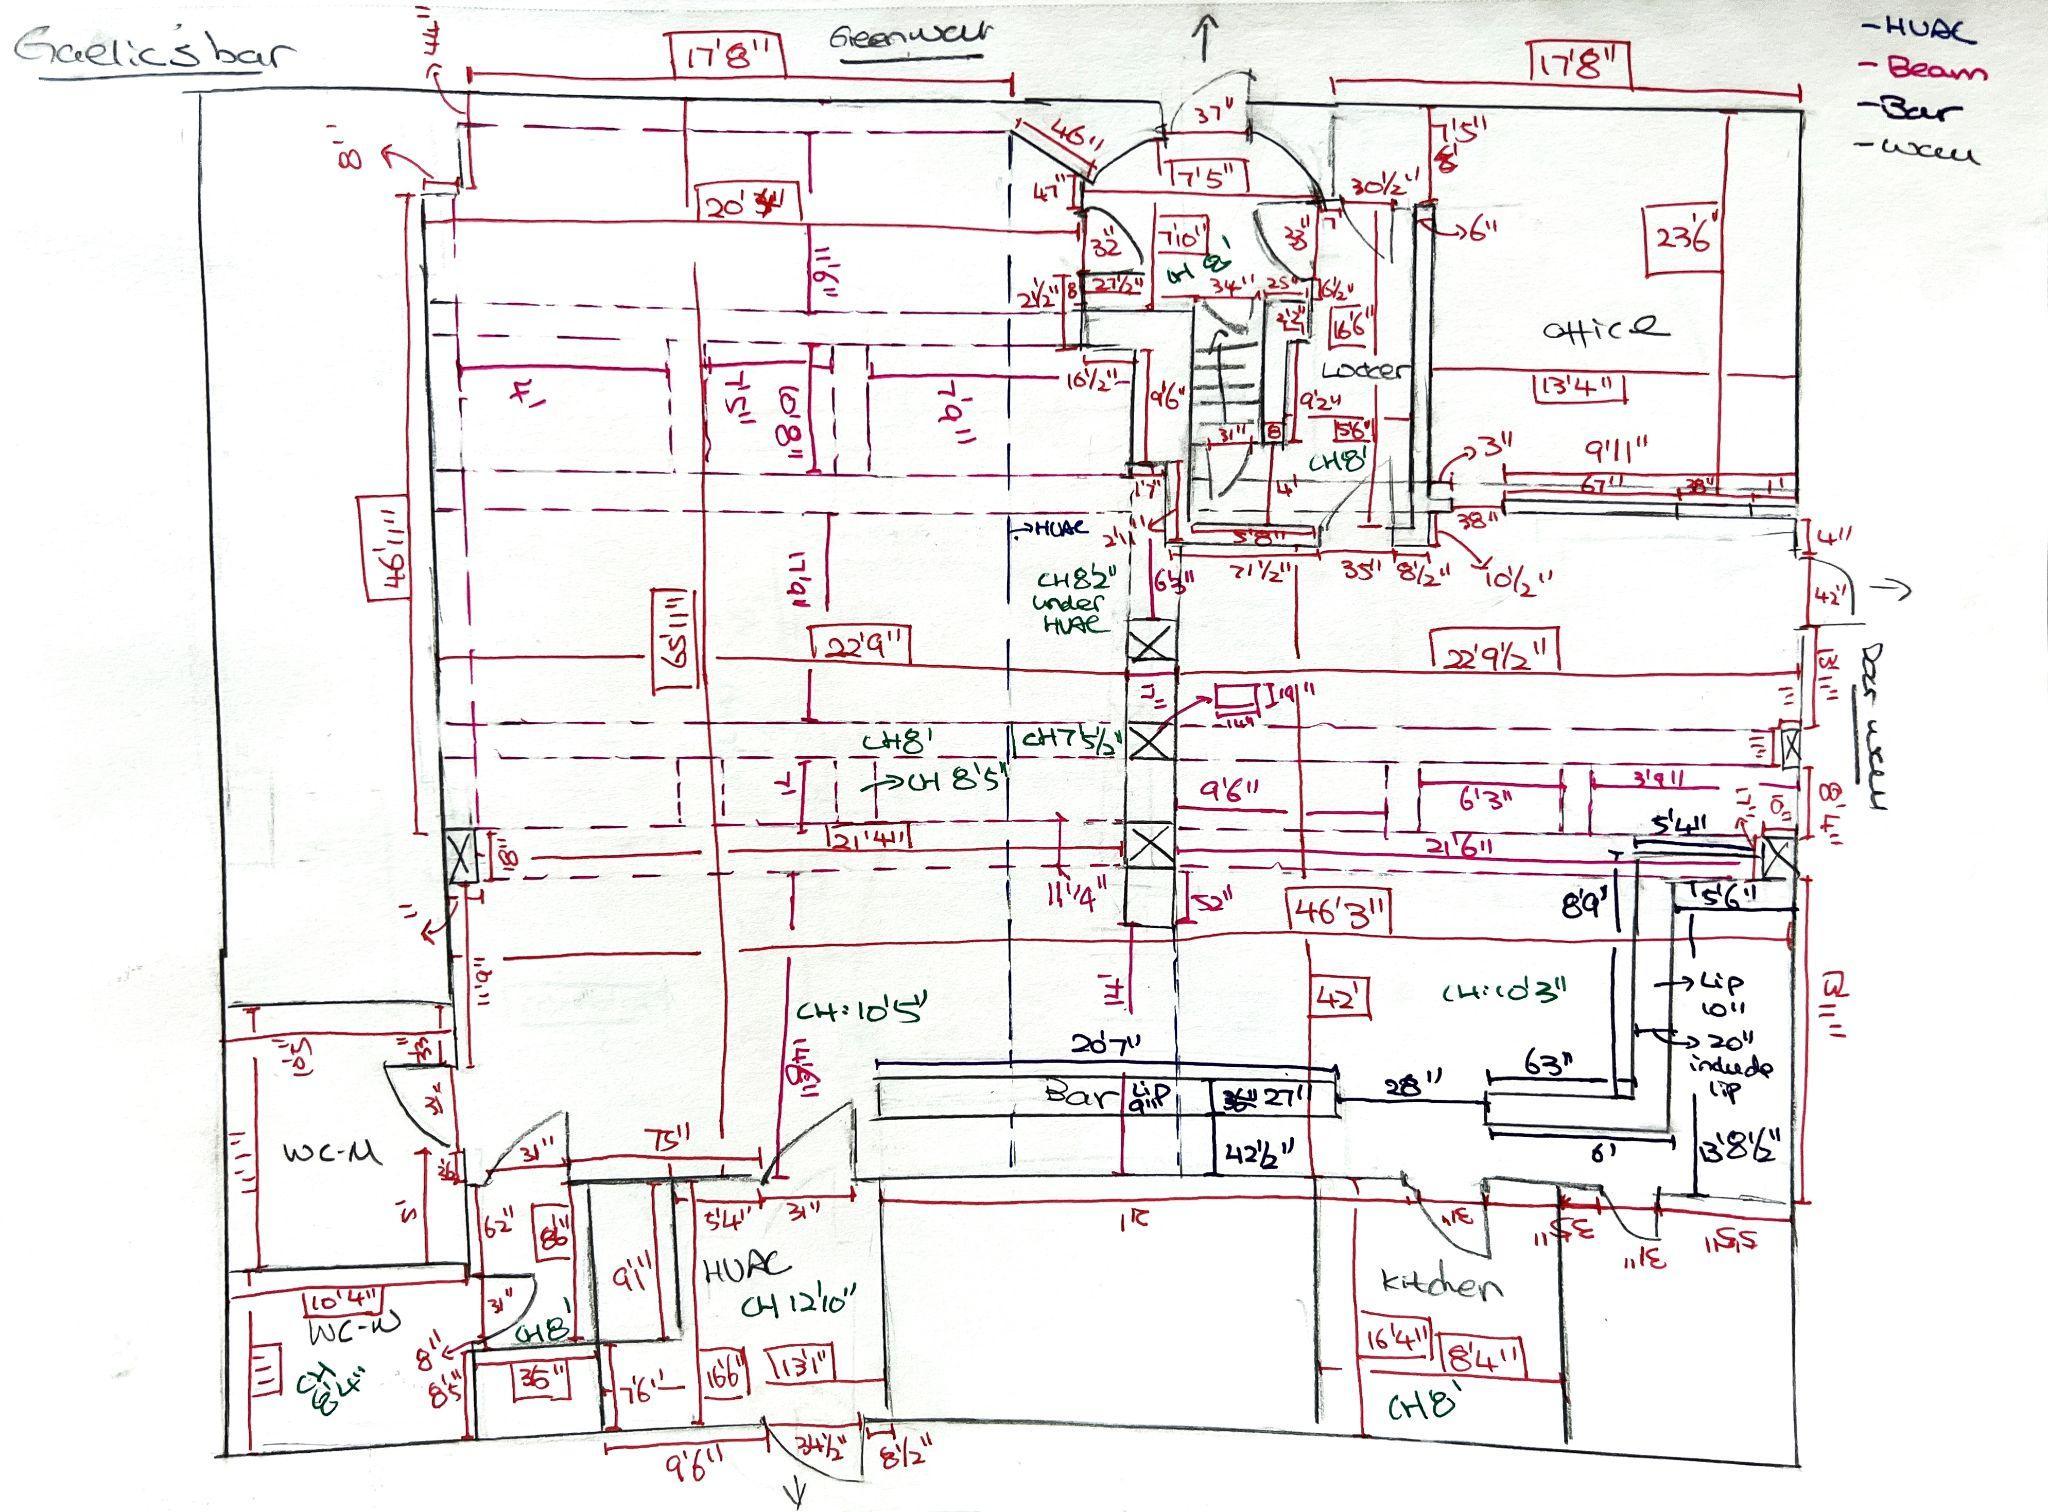 Gaelic's bar
Greenwall
17'8"
17'8"
-HVAC
-Beam
-Bar
-wall
44"
8"
46"
37"
7'5"
47"
20'3"
30½"
7'5"
6"
23'6"
32"
7'10"
CH 8'
23"
7"
27½"
21½"
8
34"
25"
6½"
16'6"
office
Locker
13'4"
7'5"
10'8"
7'9"
16½"
9'6"
9'2"
5'6"
31"
8
CH8'
3"
9'11"
67"
38"
1'
1'7"
4'
→HVAC
46'11"
5'8"
38"
4"
71½"
35"
8½"
10½"
42"
CH 8'2"
under
HVAC
63"
65'11"
22'9"
22'9½"
11"
14"
19"
CH8'
CH7'5½"
→CH 8'5"
9'6"
6'3"
3'9"
5'4"
21'4"
21'6"
18"
11¼"
52"
46'3"
8'9"
5'6"
11'9"
CH:10'5"
14'
42'
CH:10'3"
→Lip
10"
→20"
include
Lip
20'7"
63"
28"
Bar
Lip
9"
27"
42½"
6'
13'8½"
10'5"
31"
WC-M
31"
75"
5'
62"
86"
5'4"
31"
21'
31"
35"
31"
55"
9'1"
HVAC
CH 12'10"
Kitchen
10'4"
WC-W
31"
CH8'
8"
CH
8'4"
8'5"
36"
7'6"
16'6"
13'1"
16'4"
8'4"
CH8'
9'6"
34½"
8½"